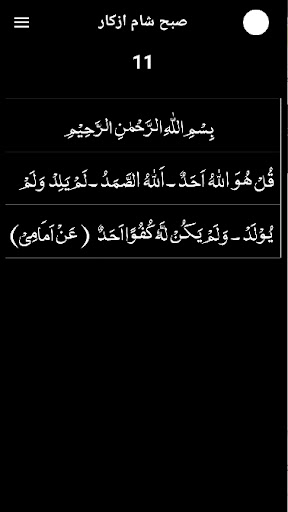 صبح شام ازکار
11
بِسْمِ اللهِ الرَّحْمٰنِ الرَّحِيْمِ
قُلْ هُوَ اللهُ اَحَدٌ ـ اَللهُ الصَّمَدُ ـ لَمْ يَلِدْ وَلَمْ
يُوْلَدْ ـ وَلَمْ يَكُنْ لَّهٗ كُفُوًا اَحَدٌ (عَنْ اَمَامِيْ)